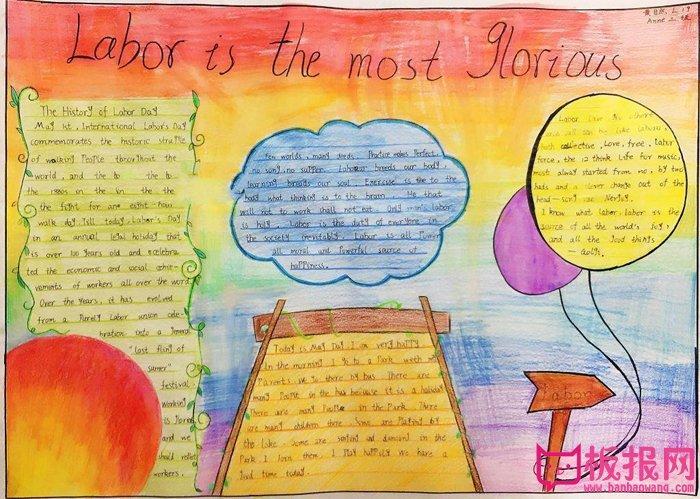 Anne
Labor is the most glorious
The History of Labor Day
May 1st, International Labor's Day
commemorates the historic
of walking People throughout the
world, and the to the to
the 1880s in the in the the
the fight for ane eight-hour
walk day Till today, Labor's Day
in an annual legal hotiday that
is over 100 years old and
ted the economic and social achie-
vements of workers all over the word
Over the years, it has evolved
from a Purely Labor union cele-
bration into a
"last fling of
sumer"
festival
working
is
and we
should
workers.
Few worlds, many deeds. Practice makes Perfect.
no sung, no supper. breeds our body
learning breeds our soul. Exercise is the to the
body what thinking is to the brain. He that
will not to work shall not eat. Only man's labor
is holy. Labor is the duty of everyone in
the society Labor is all
all moral and Powerful source of
happiness.
Labor, Love
and all be like
both collective, Love, free, labor
force, the 12 think Life for music,
most always started from no, by two
hads and a lover change out of the
head
I know what labor, labor is the
source of all the world's joy,
and all the Jood things
Today is May Day I am very happy
In the morning I go to a Park weth my
Parents we go there by bus There are
many People in the bus because it is a holiday
There are many People in the Park There
are many children there Some are Playing by
the lake Some are and dancind in the
Park I Join them I Play happily We have a
Jood time today.
Labor
板报网
www.banbaowang.com